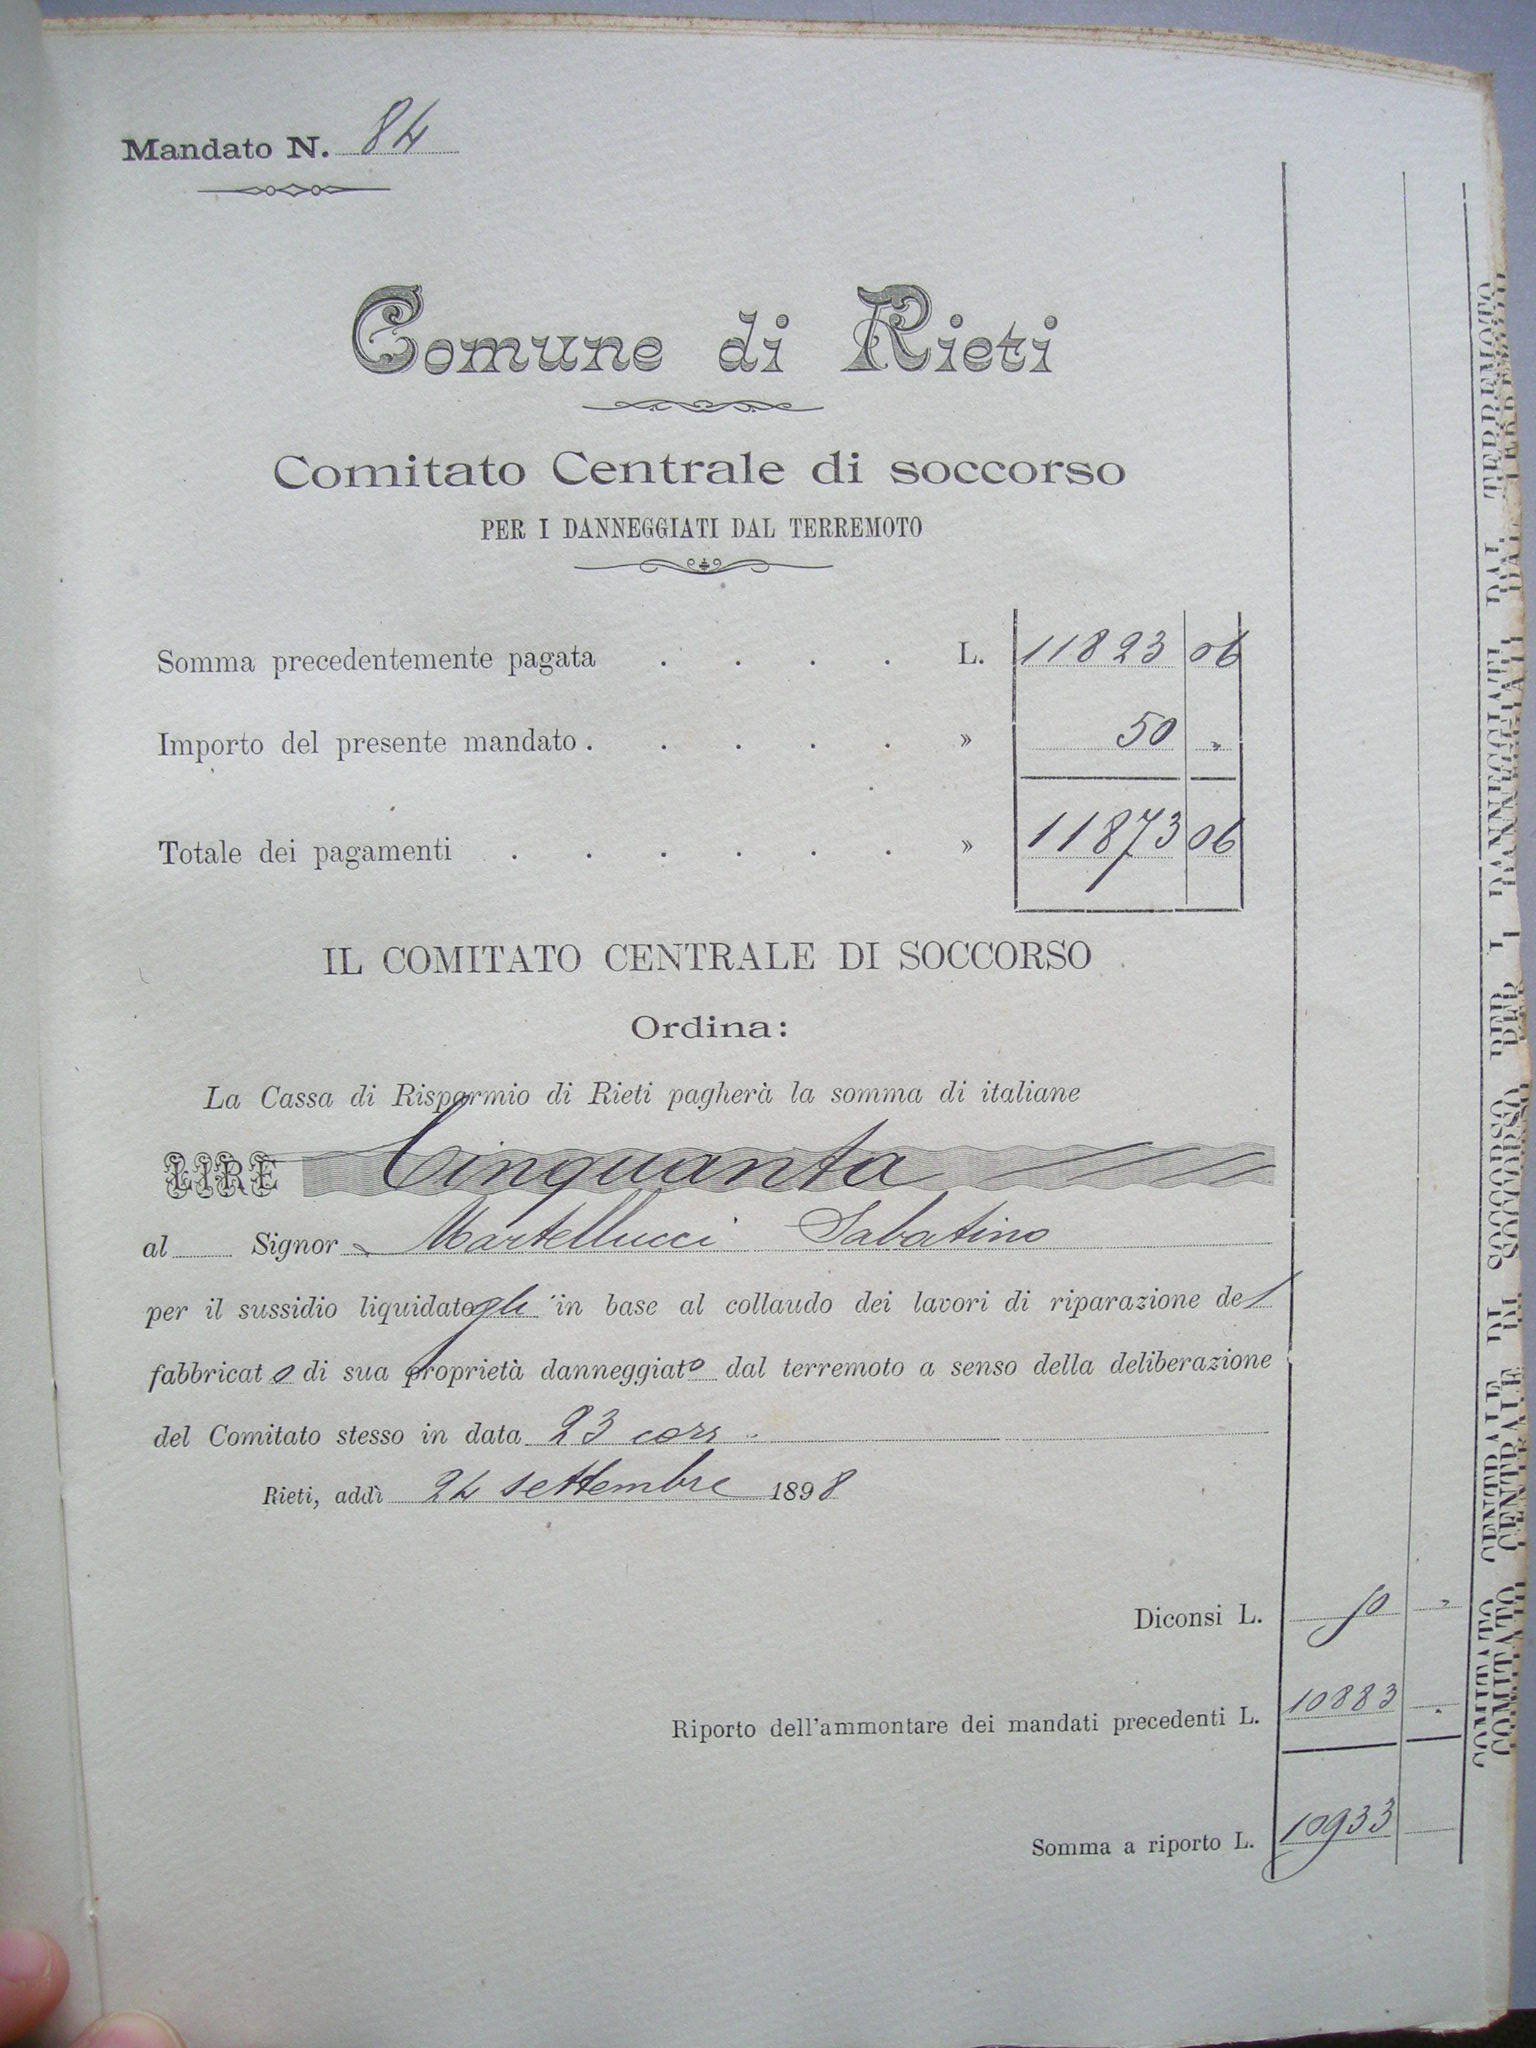 Mandato N. 84
Comune di Rieti
Comitato Centrale di soccorso
PER I DANNEGGIATI DAL TERREMOTO
Somma precedentemente pagata . . . . L. 11823 06
Importo del presente mandato . . . . . » 50 „
Totale dei pagamenti . . . . . . » 11873 06
IL COMITATO CENTRALE DI SOCCORSO
Ordina:
La Cassa di Risparmio di Rieti pagherà la somma di italiane
LIRE Cinquanta
al Signor Martellucci Sabatino
per il sussidio liquidatogli in base al collaudo dei lavori di riparazione del
fabbricato di sua proprietà danneggiato dal terremoto a senso della deliberazione
del Comitato stesso in data 23 corr.
Rieti, addì 24 settembre 1898
Diconsi L. 50 „
Riporto dell'ammontare dei mandati precedenti L. 10883 .
Somma a riporto L. 10933
COMITATO CENTRALE DI SOCCORSO PER I DANNEGGIATI DAL TERREMOTO